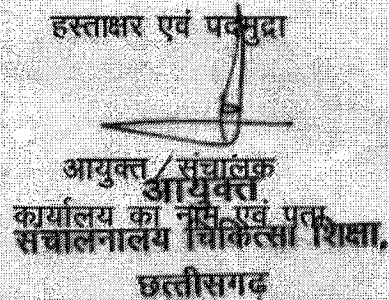 हस्ताक्षर एवं पदमुद्रा
आयुक्त / संचालक
आयुक्त
कार्यालय का नाम एवं पता
संचालनालय चिकित्सा शिक्षा,
छत्तीसगढ़